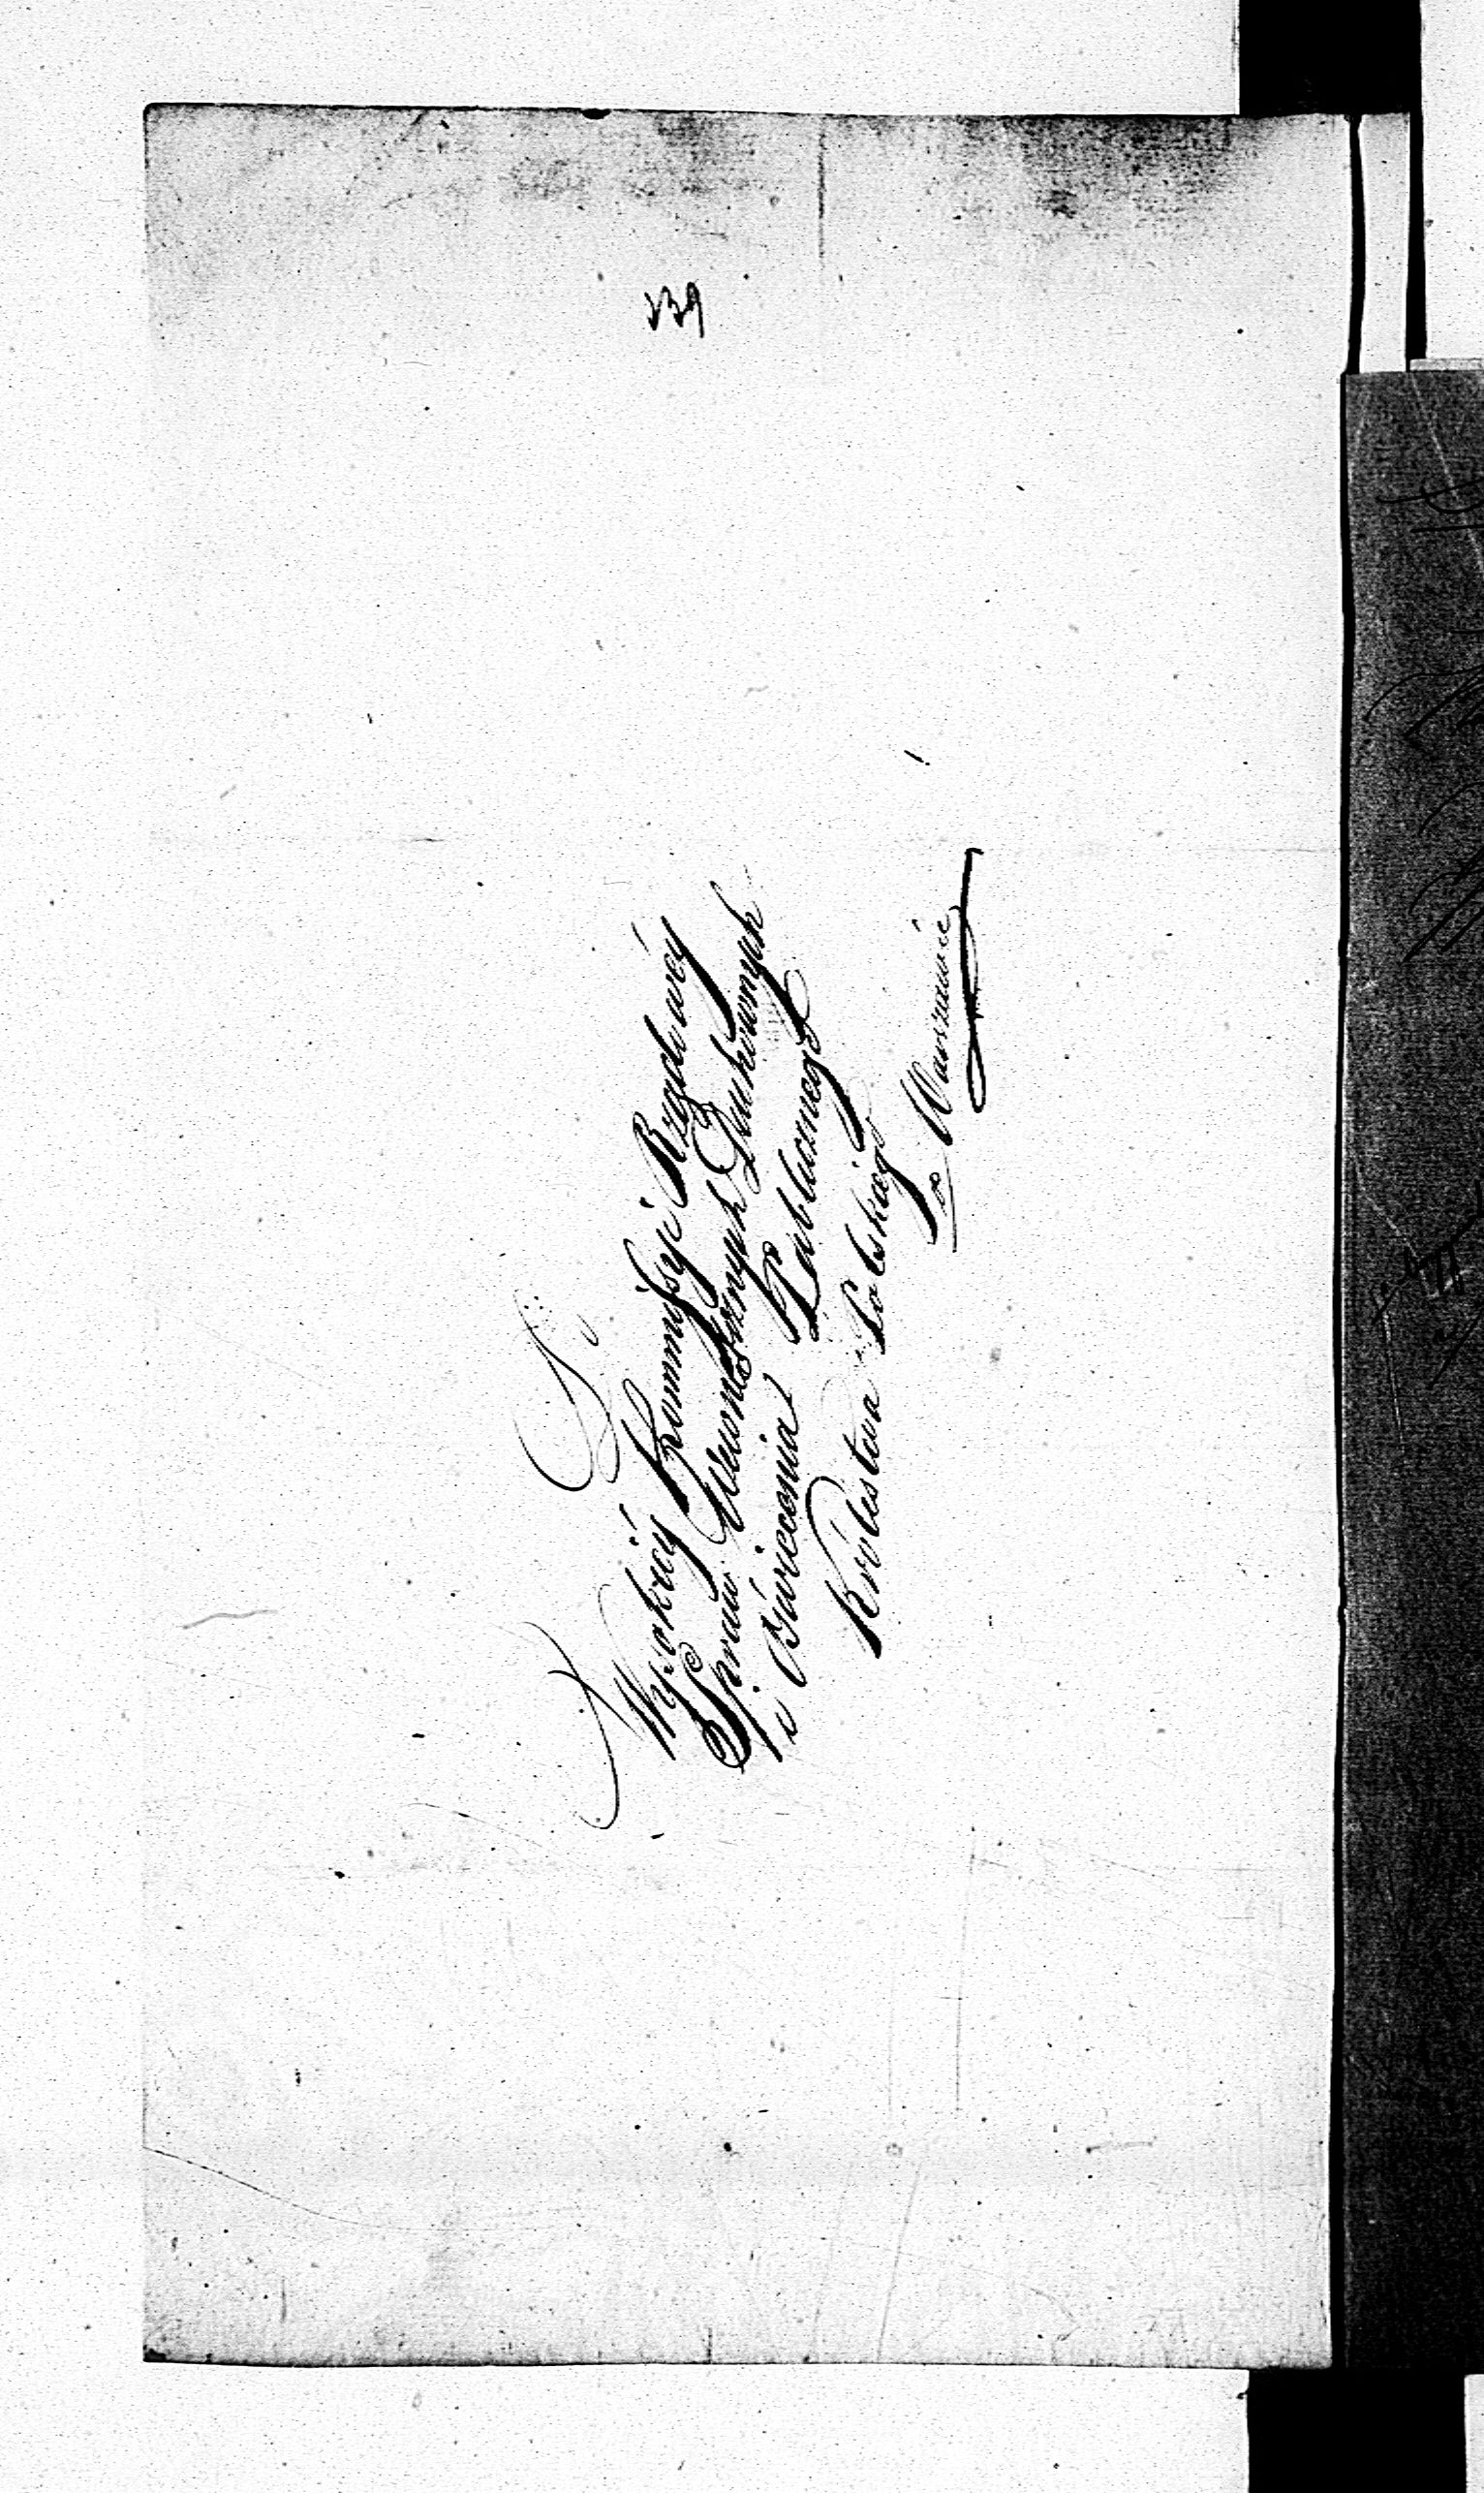 239
Do
Wysokiéy Kommissyi Rządowéy
Spraw Wewnętrznych Duchownych
i Oświecenia Publicznego
Królestwa Polskiego
w Warszawie